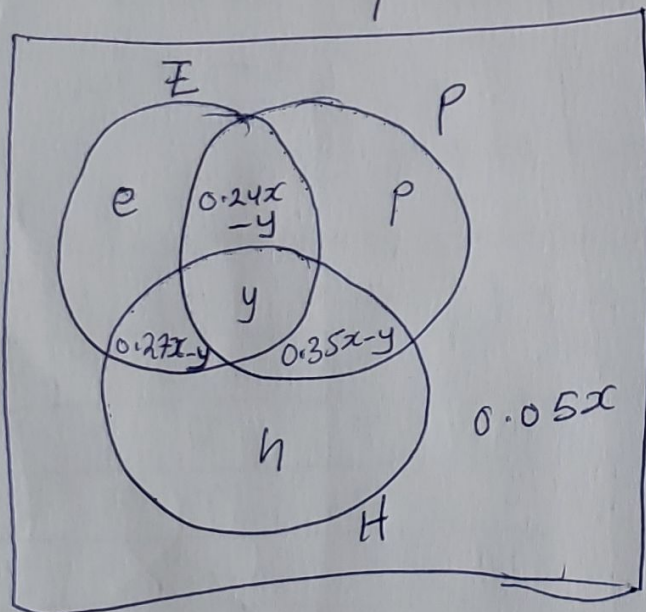 E
P
e
0.24x
-y
p
y
0.27x-y
0.35x-y
0.05x
h
H